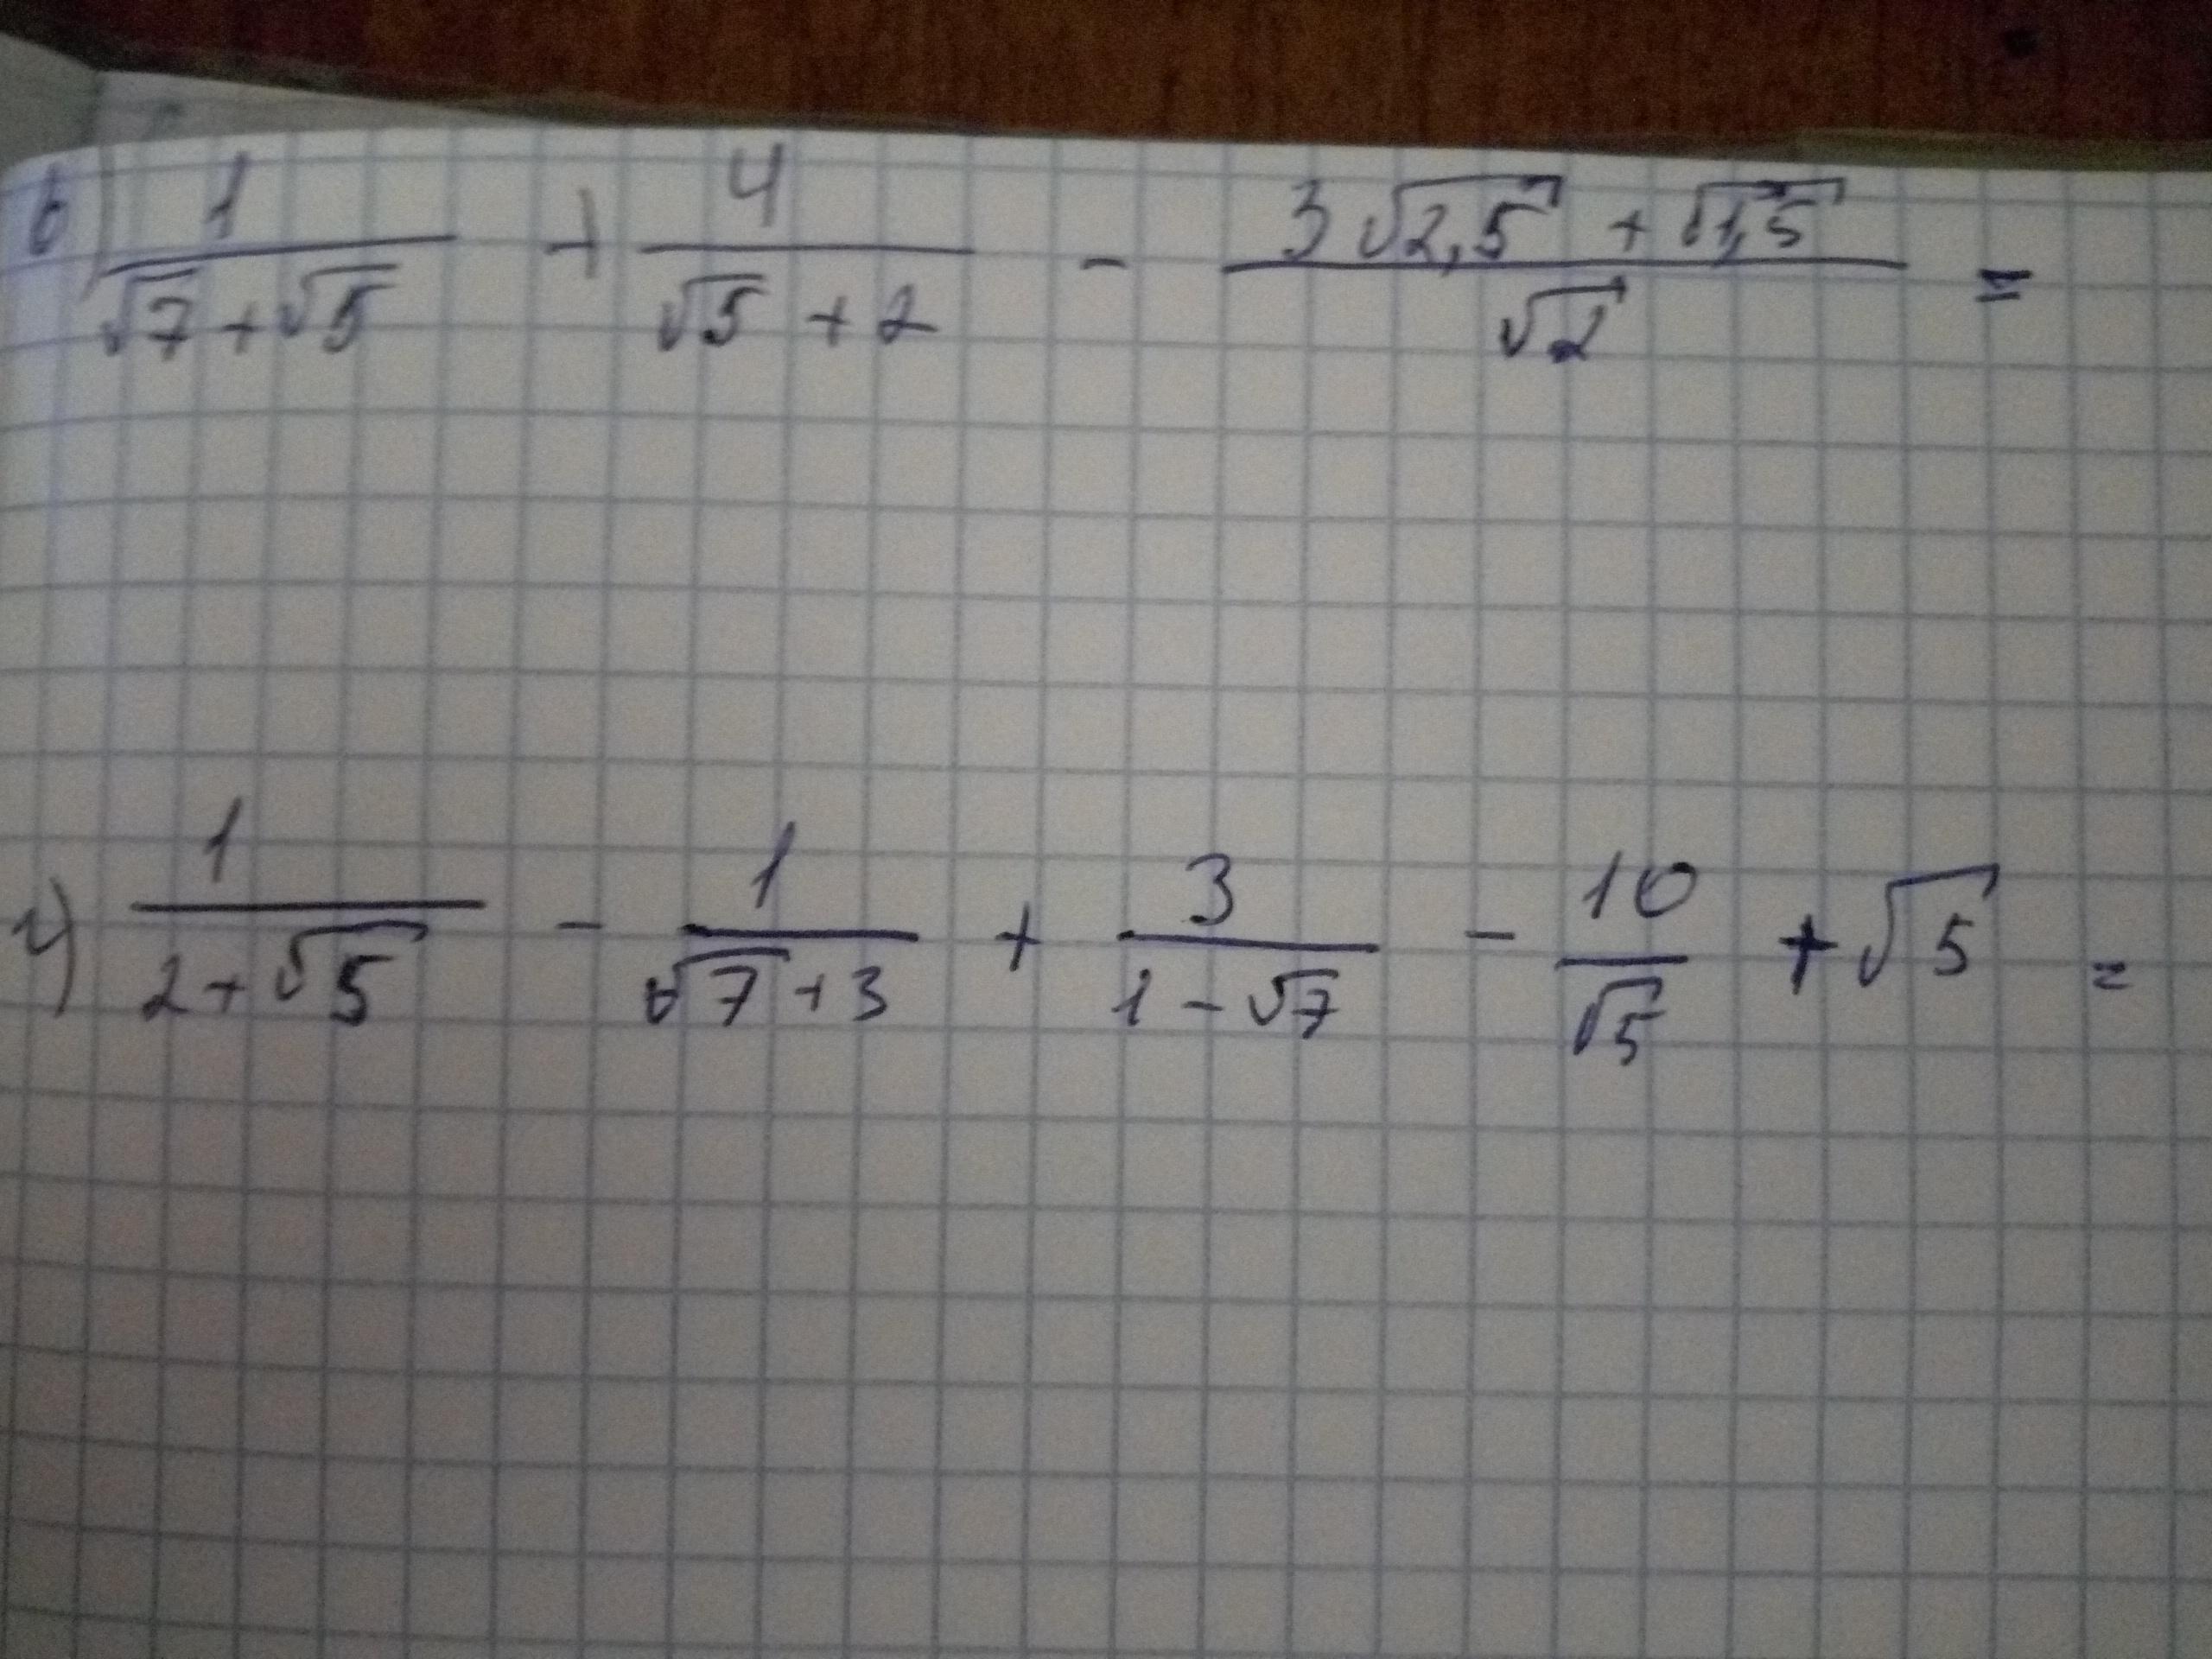 в) 1/(√7 + √5) + 4/(√5 + 2) - (3√2,5 + √1,5)/√2 =
г) 1/(2 + √5) - 1/(√7 + 3) + 3/(1 - √7) - 10/√5 + √5 =